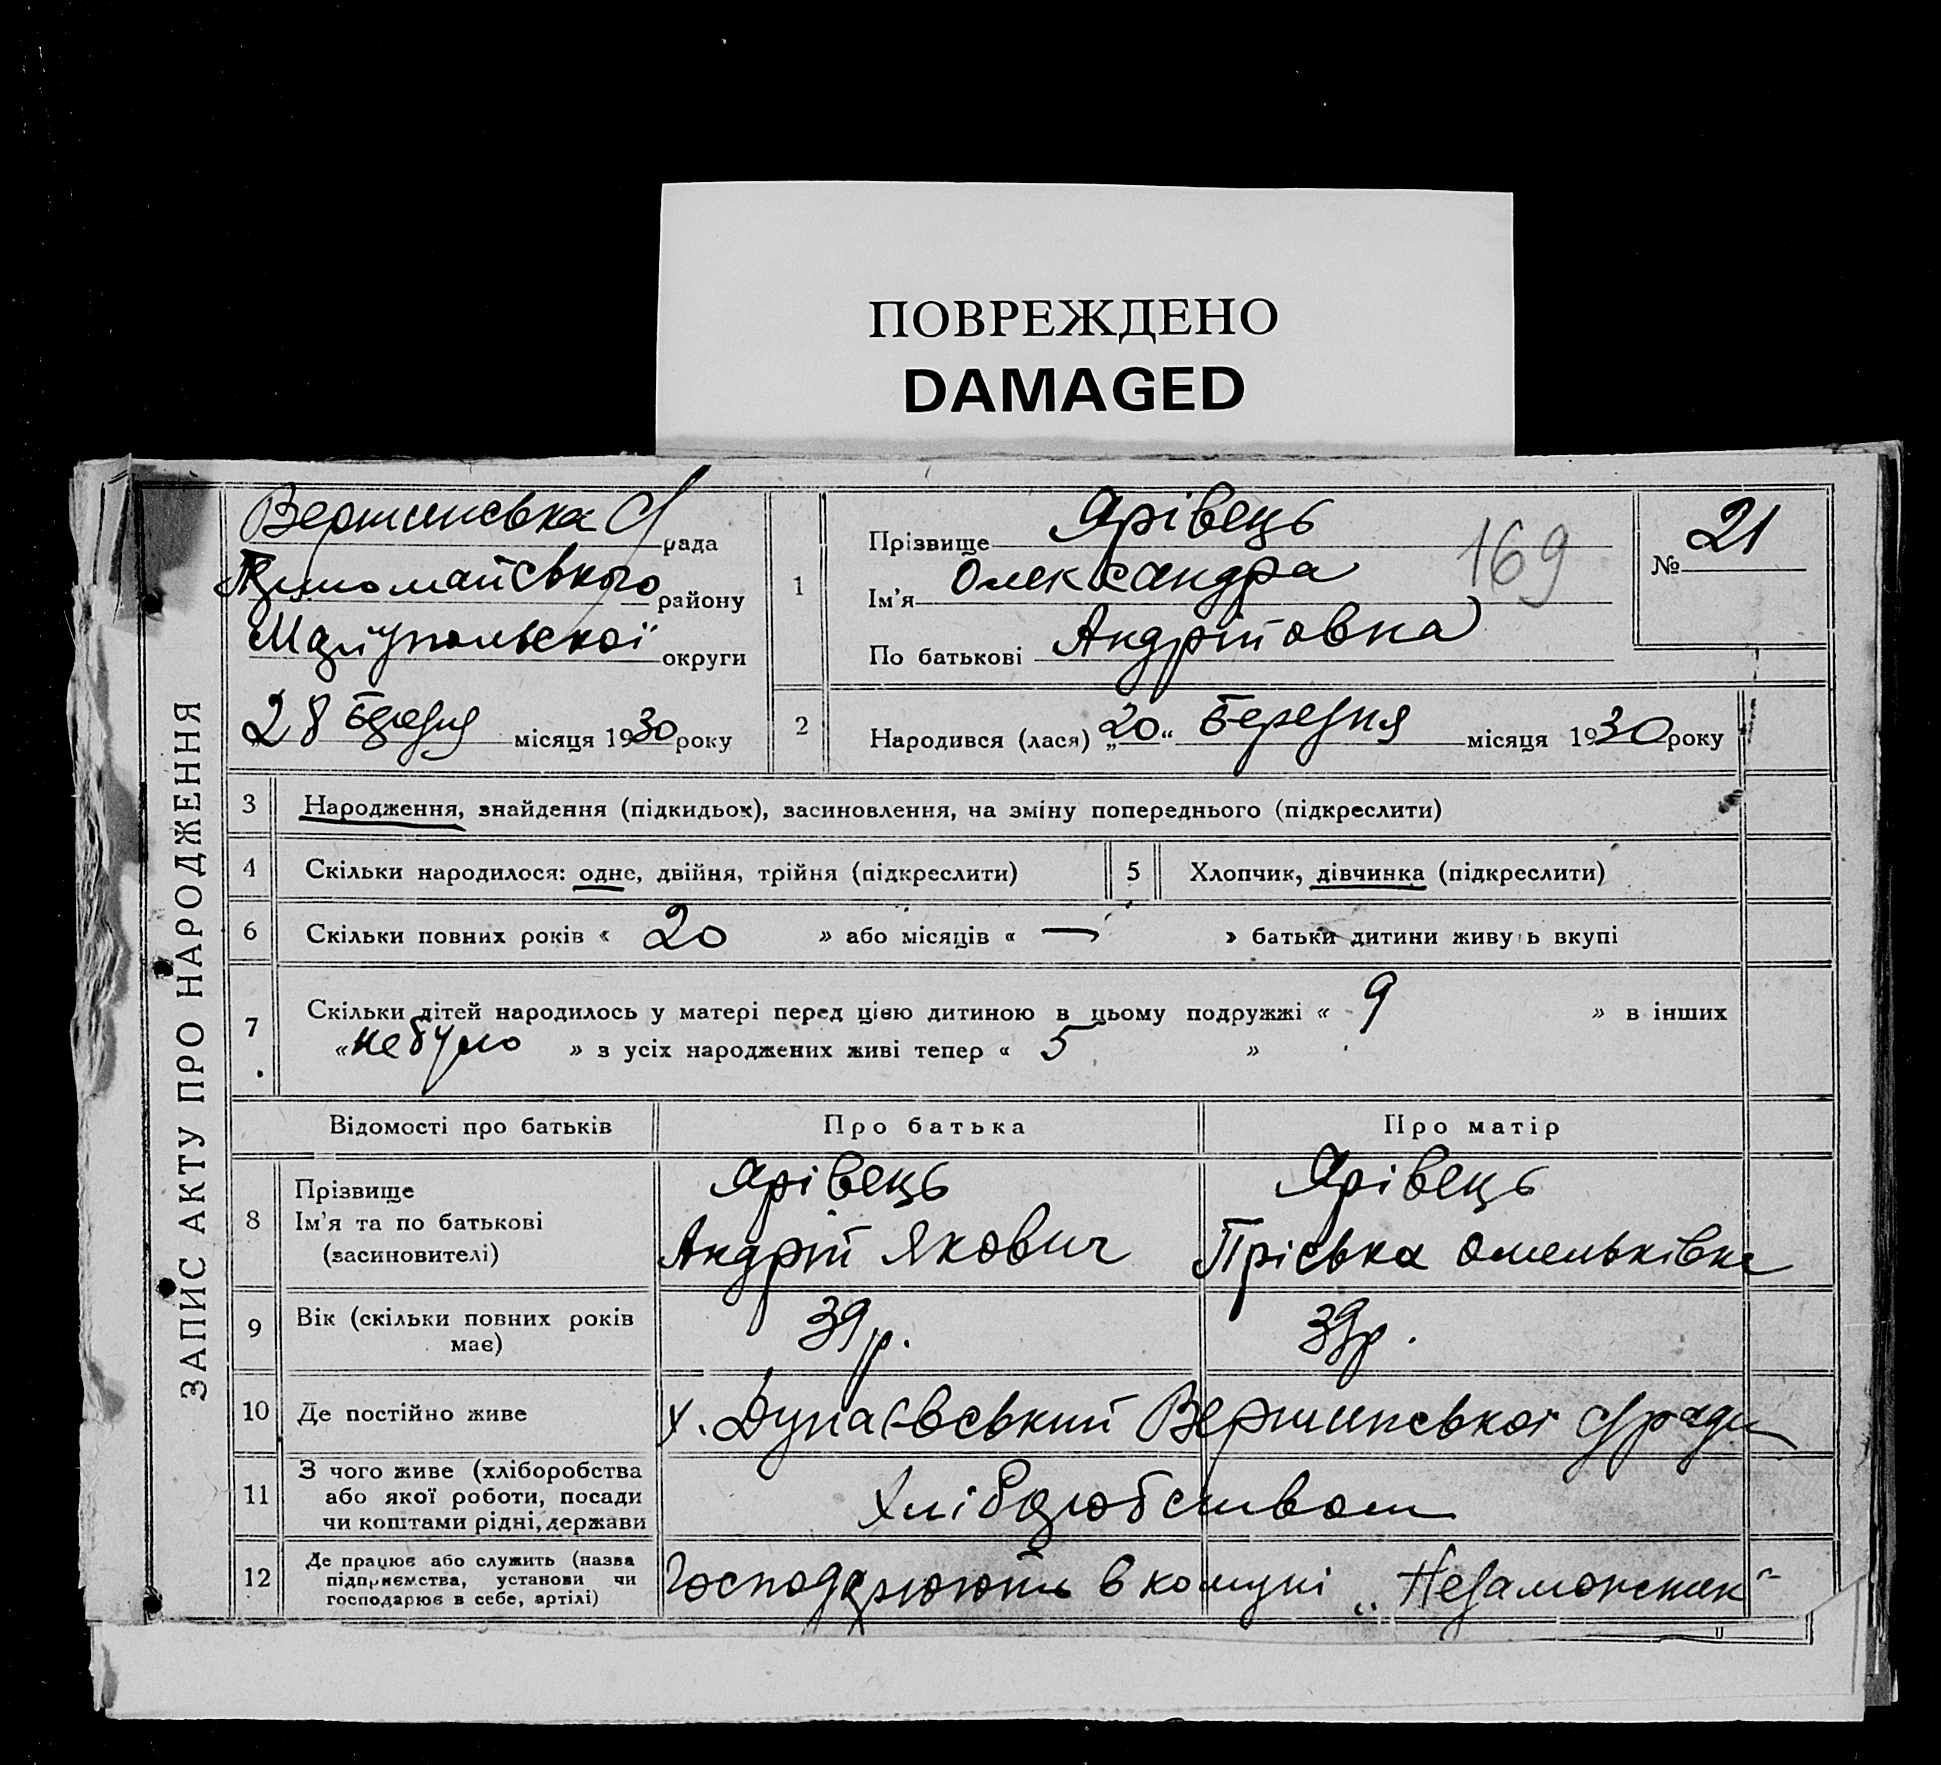 ПОВРЕЖДЕНО
DAMAGED
ЗАПИС АКТУ ПРО НАРОДЖЕННЯ
Вершинська С/рада
району
Маріупольської округи
28 березня місяця 1930 року
1
Прізвище Ярівець
Ім'я Олександра
По батькові Андрійовна
169
№ 21
2
Народився (лася) „20“ березня місяця 1930 року
3 Народження, знайдення (підкидьок), засиновлення, на зміну попереднього (підкреслити)
4 Скільки народилося: одне, двійня, трійня (підкреслити)
5 Хлопчик, дівчинка (підкреслити)
6 Скільки повних років « 20 » або місяців « — » батьки дитини живуть вкупі
7 Скільки дітей народилось у матері перед цією дитиною в цьому подружжі « 9 » в інших
« не було » з усіх народжених живі тепер « 5 »
Відомості про батьків Про батька Про матір
8 Прізвище Ярівець Ярівець
Ім'я та по батькові Андрій Якович Пріська Омельківна
(засиновителі)
9 Вік (скільки повних років має) 39 р. 39 р.
10 Де постійно живе х. Дунаєвський Вершинської С/ради
11 З чого живе (хліборобства
або якої роботи, посади
чи коштами рідні, держави
Хліборобством
12 Де працює або служить (назва
підприємства, установи чи
господарює в себе, артілі)
Господарюють в комуні „Незаможник“